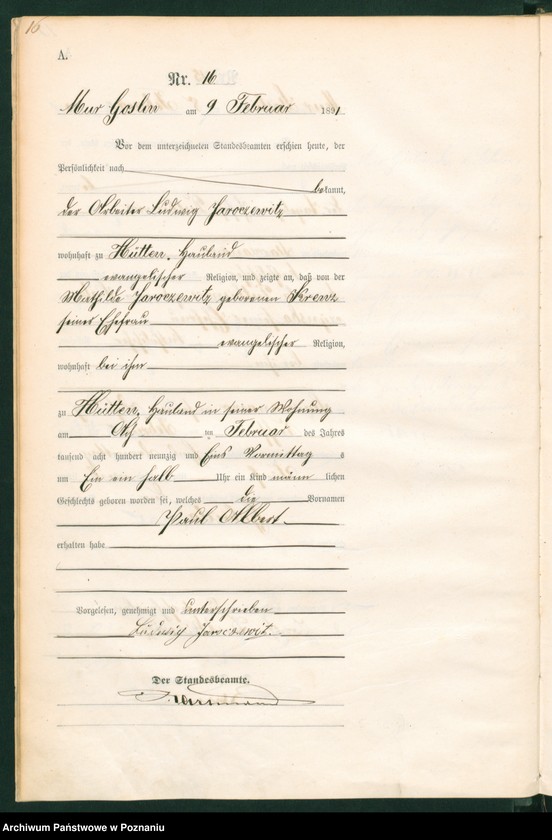 16
A.
Nr. 16
Mur Goslin am 9 Februar 1891
Vor dem unterzeichneten Standesbeamten erschien heute, der
Persönlichkeit nach
bekannt,
der Arbeiter Ludwig Jaroczewitz
wohnhaft zu Hütten Hauland
evangelischer Religion, und zeigte an, daß von der
Mathilde Jaroczewitz geborenen Krenz
seiner Ehefrau
evangelischer Religion,
wohnhaft bei ihm
zu Hütten Hauland in seiner Wohnung
am ten Februar des Jahres
tausend acht hundert neunzig und Eins Vormittag s
um Ein ein halb Uhr ein Kind männ lichen
Geschlechts geboren worden sei, welches die Vornamen
Paul Albert
erhalten habe
Vorgelesen, genehmigt und unterschrieben
Ludwig Jaroczewitz.
Der Standesbeamte.
Archiwum Państwowe w Poznaniu